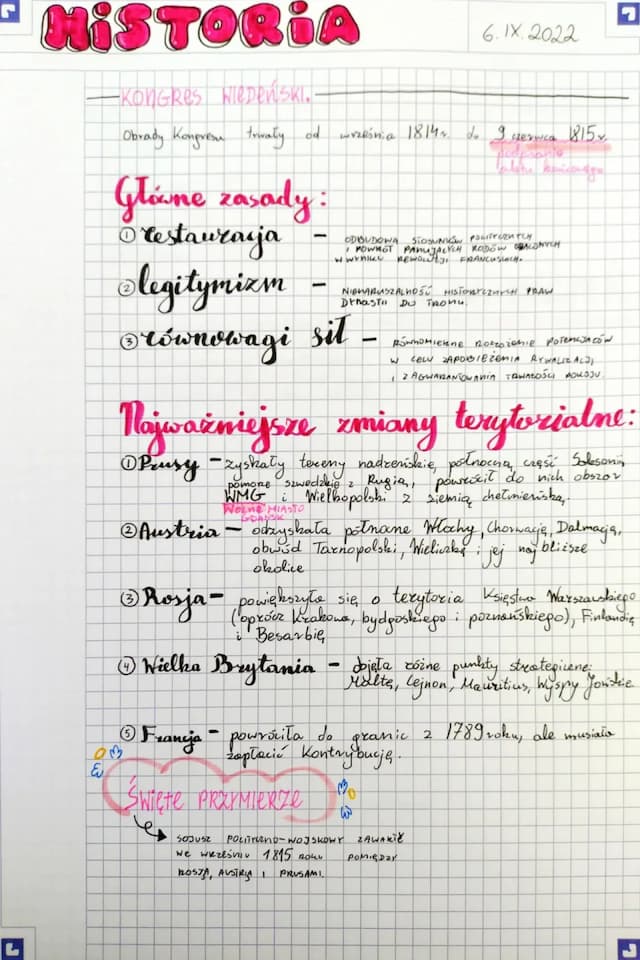 HISTORIA
6.IX.2022
KONGRES WIEDEŃSKI.
Obrady Kongresu trwały od września 1814r. do 9 czerwca 1815r.
podpisanie
aktu końcowego
Główne zasady:
① restauracja – ODBUDOWA STOSUNKÓW POLITYCZNYCH
I POWRÓT PANUJĄCYCH RODÓW OBALONYCH
W WYNIKU REWOLUCJI FRANCUSKICH.
② legitymizm – NIENARUSZALNOŚĆ HISTORYCZNYCH PRAW
DYNASTII DO TRONU.
③ równowagi sił – RÓWNOMIERNE ROZŁOŻENIE POTENCJAŁÓW
W CELU ZAPOBIEŻENIA RYWALIZACJI
I ZAGWARANTOWANIA TRWAŁOŚCI POKOJU.
Najważniejsze zmiany terytorialne:
① Prusy – zyskały tereny nadreńskie, północną część Saksonii,
pomorze szwedzkie z Rugią, powrócił do nich obszar
WMG i Wielkopolski z ziemią chełmińską.
WOLNE MIASTO
GDAŃSK
② Austria – odzyskała północne Włochy, Chorwację, Dalmację,
obwód Tarnopolski, Wieliczkę i jej najbliższe
okolice
③ Rosja – powiększyła się o terytoria Księstwa Warszawskiego
(oprócz Krakowa, bydgoskiego i poznańskiego), Finlandię
i Besarbię
④ Wielka Brytania – objęła różne punkty strategiczne:
Maltę, Cejlon, Mauritius, Wyspy Jońskie
⑤ Francja – powróciła do granic z 1789 roku, ale musiała
zapłacić kontrybucję.
ŚWIĘTE PRZYMIERZE
SOJUSZ POLITYCZNO-WOJSKOWY ZAWARTY
WE WRZEŚNIU 1815 ROKU POMIĘDZY
ROSJĄ, AUSTRIĄ I PRUSAMI.